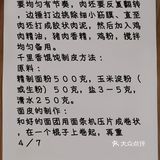 要均匀有节奏，肉坯要反复翻转
，边捶打边挑除细小筋膜，直至
肉坯成胶状肉泥，然后加入鸡
肉精油，猪肉香精，鸡粉，搅拌
均匀备用。
千里香馄饨制皮方法：
原料：
精制面粉500克，玉米淀粉（
或生粉）50克，盐3－5克，
清水250克。
面皮的制作：
和好的面团用面条机压片成卷状
，在一个棍子上卷起，再重
4／7
大众点评